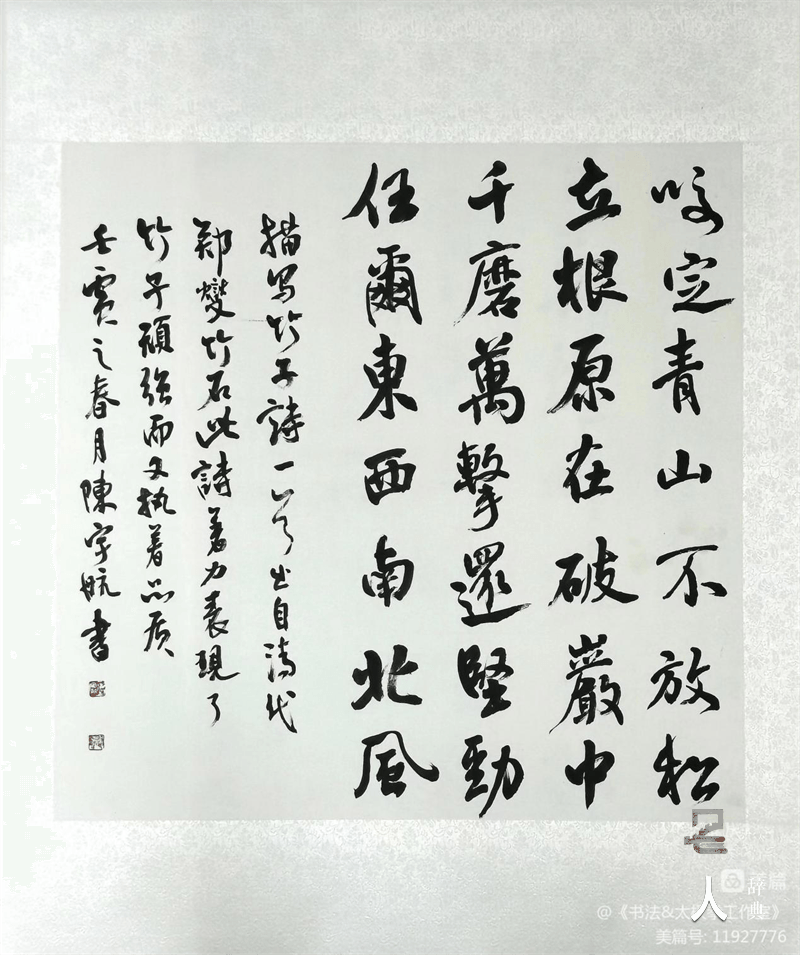 咬定青山不放松
立根原在破巖中
千磨萬擊還堅勁
任爾東西南北風
描写竹子詩一首出自清代
郑燮竹石此詩着力表現了
竹子頑強而又执着品质
壬寅之春月陳宇航書
名人辞典
美篇
@《书法&太极拳工作室》
美篇号: 11927776